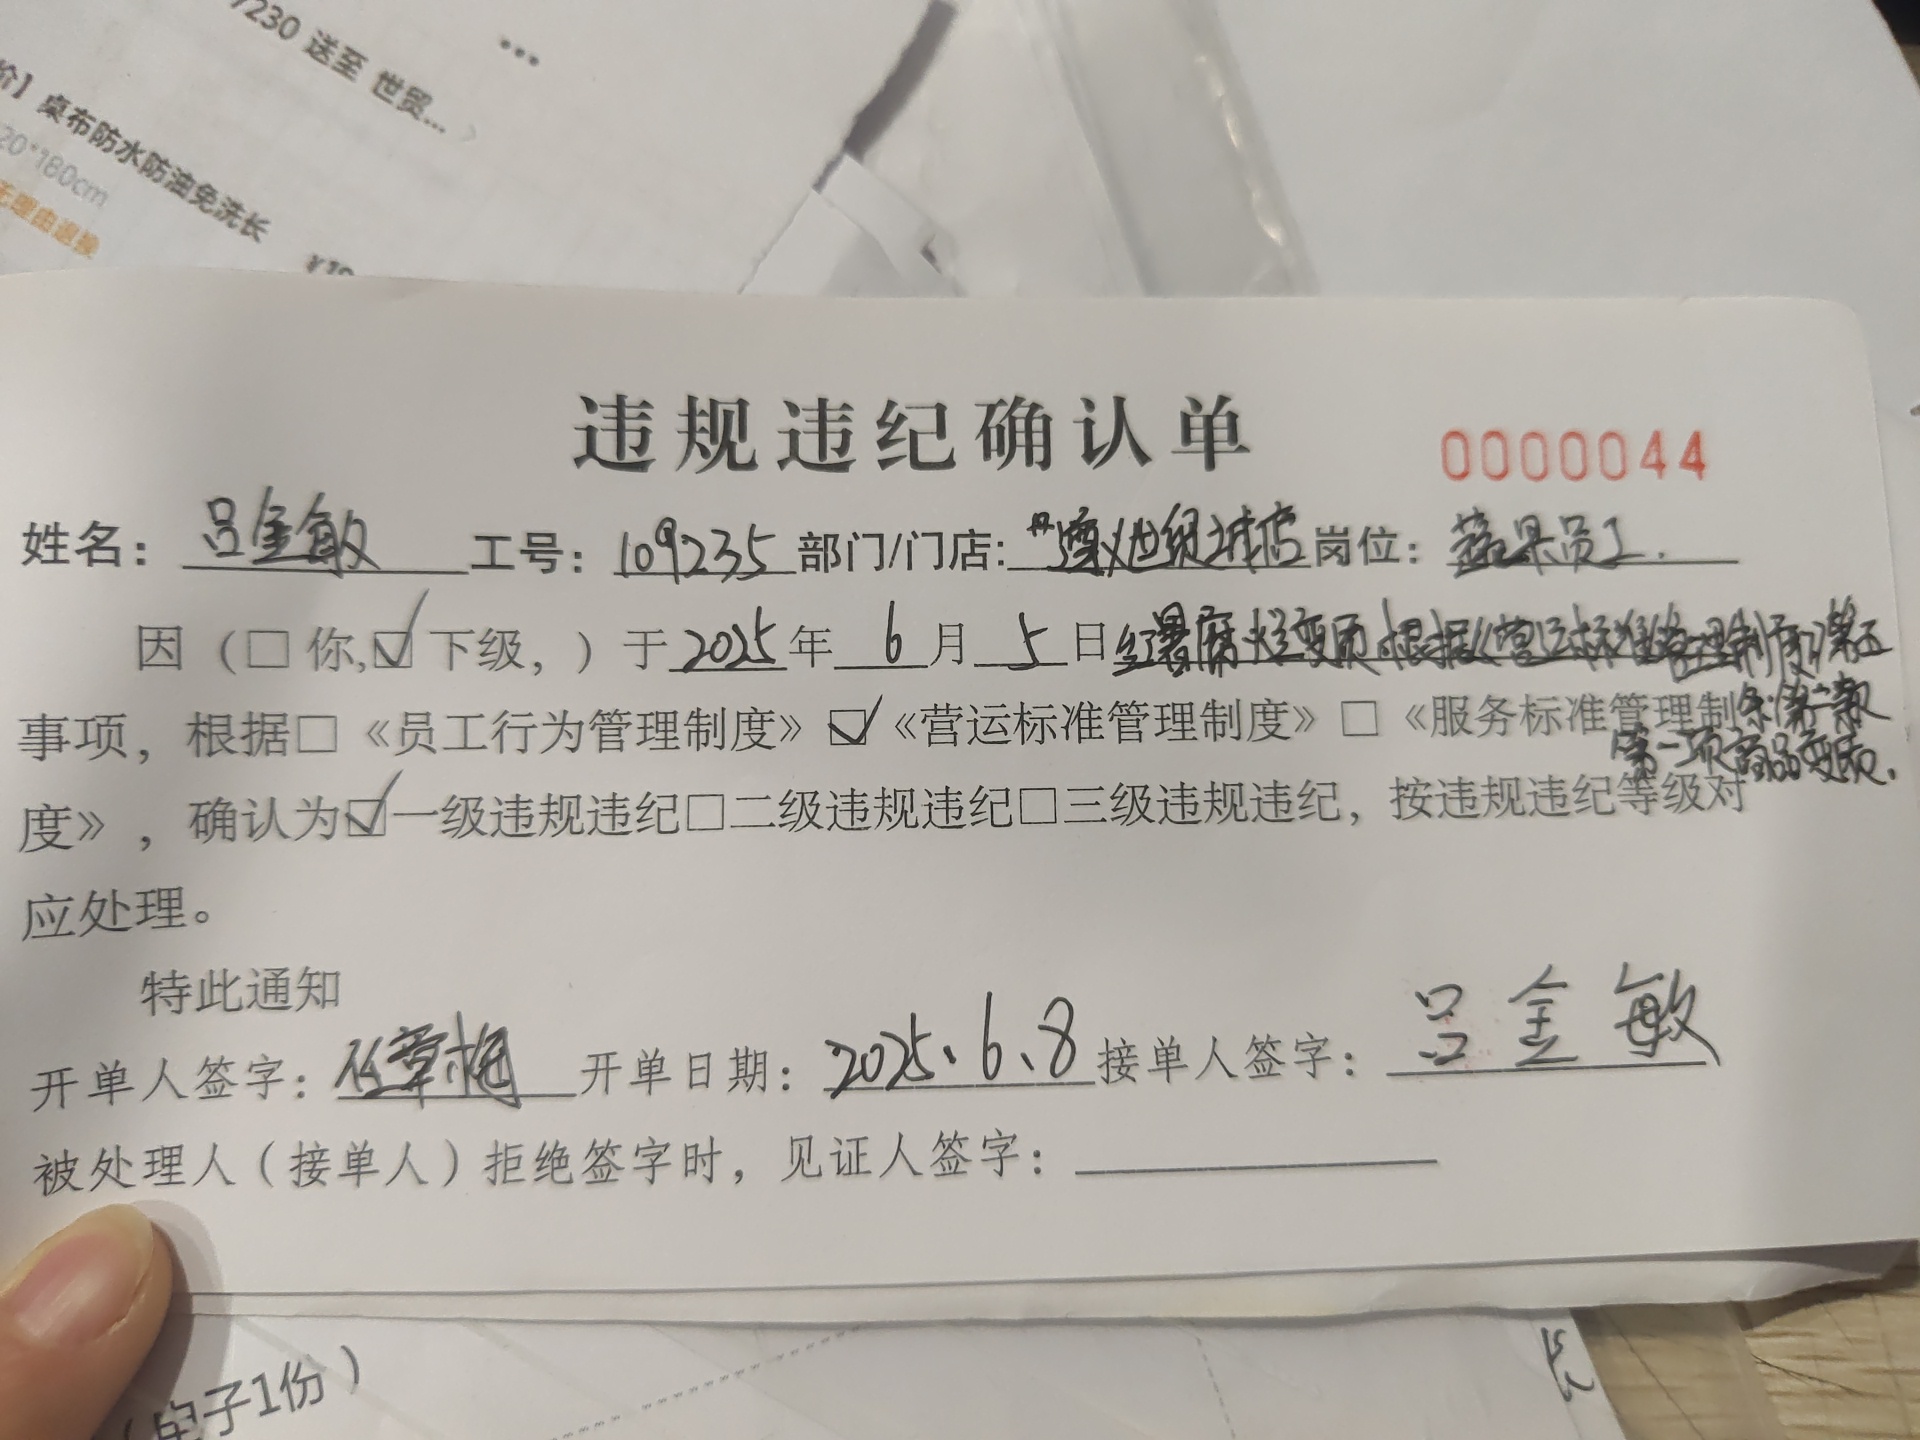 7230 送至 世贸...
价】桌布防水防油免洗长
20*180cm
无理由退换
¥19
违规违纪确认单
0000044
姓名：吕金敏 工号：109235 部门/门店：遵义世纪城店 岗位：蔬果员工.
因（□你,☑下级，）于2025年6月5日红薯腐烂变质根据《营运标准管理制度》第五
条第一款
第一项商品变质.
事项，根据□《员工行为管理制度》☑《营运标准管理制度》□《服务标准管理制
度》，确认为☑一级违规违纪□二级违规违纪□三级违规违纪，按违规违纪等级对
应处理。
特此通知
开单人签字： 开单日期：2025.6.8 接单人签字：吕金敏
被处理人（接单人）拒绝签字时，见证人签字：
（电子1份）